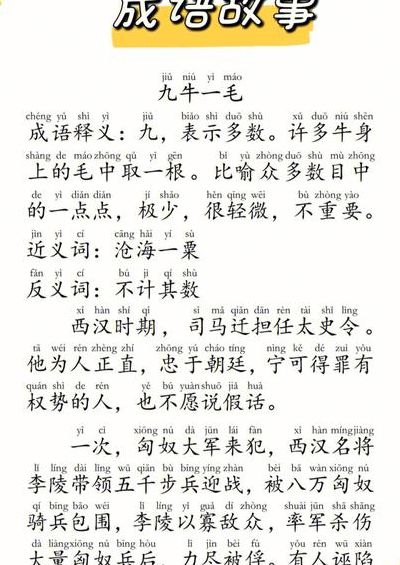 成语故事
jiǔ niú yì máo
九牛一毛
chéng yǔ shì yì jiǔ biǎo shì duō shù xǔ duō niú shēn
成语释义：九，表示多数。许多牛身
shàng de máo zhōng qǔ yì gēn bǐ yù zhòng duō shù mù zhōng
上的毛中取一根。比喻众多数目中
de yì diǎn diǎn jí shǎo hěn qīng wēi bú zhòng yào
的一点点，极少，很轻微，不重要。
jìn yì cí cāng hǎi yí sù
近义词：沧海一粟
fǎn yì cí bú jì qí shù
反义词：不计其数
xī hàn shí qī sī mǎ qiān dān rèn tài shǐ lìng
西汉时期，司马迁担任太史令。
tā wéi rén zhèng zhí zhōng yú cháo tíng nìng kě dé zuì yǒu
他为人正直，忠于朝廷，宁可得罪有
quán shì de rén yě bú yuàn shuō jiǎ huà
权势的人，也不愿说假话。
yí cì xiōng nú dà jūn lái fàn xī hàn míng jiàng
一次，匈奴大军来犯，西汉名将
lǐ líng dài lǐng wǔ qiān bù bīng yíng zhàn bèi bā wàn xiōng nú
李陵带领五千步兵迎战，被八万匈奴
qí bīng bāo wéi lǐ líng yǐ guǎ dí zhòng shuài jūn shā shāng
骑兵包围，李陵以寡敌众，率军杀伤
dà liàng xiōng nú bīng hòu lì jìn bèi fú yǒu rén wū xiàn
大量匈奴兵后，力尽被俘。有人诬陷